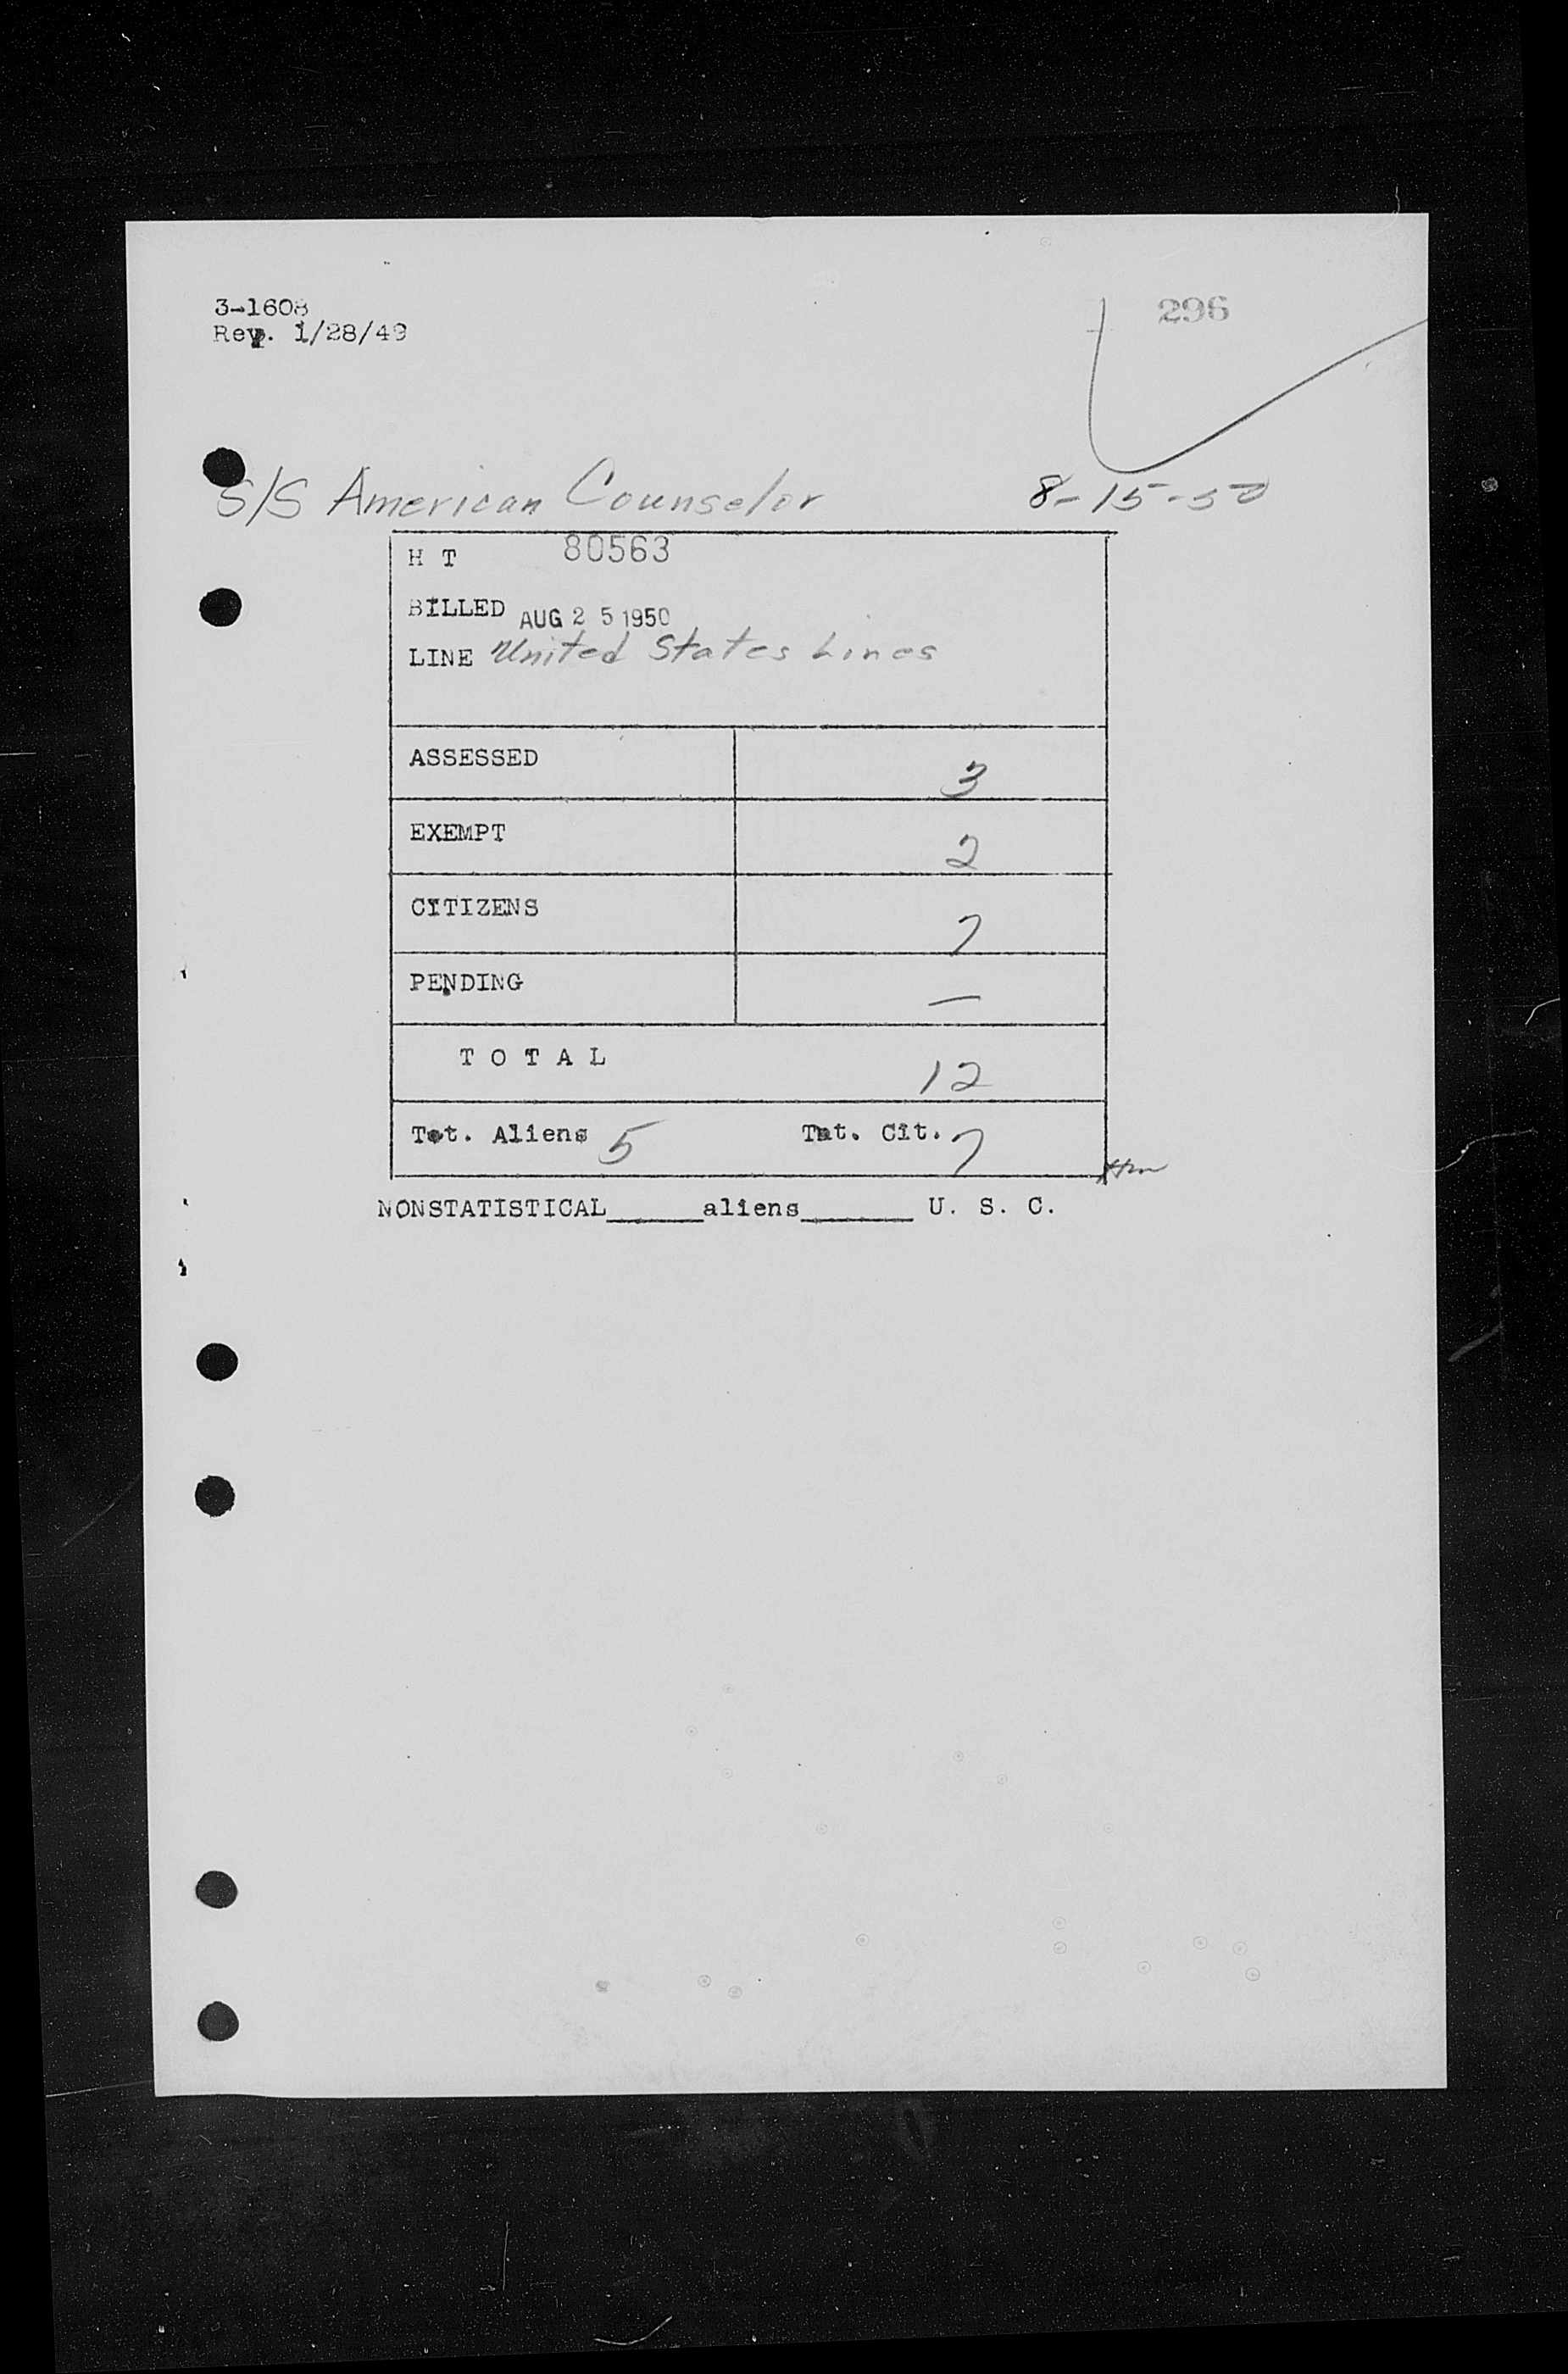 3-1608
Rev. 1/28/49
296
S/S American Counselor 8-15-50
H T 80563
BILLED AUG 25 1950
LINE United States Lines
ASSESSED 3
EXEMPT 2
CITIZENS 7
PENDING —
T O T A L 12
Tot. Aliens 5 Tot. Cit. 7
NONSTATISTICAL______aliens_______ U. S. C.